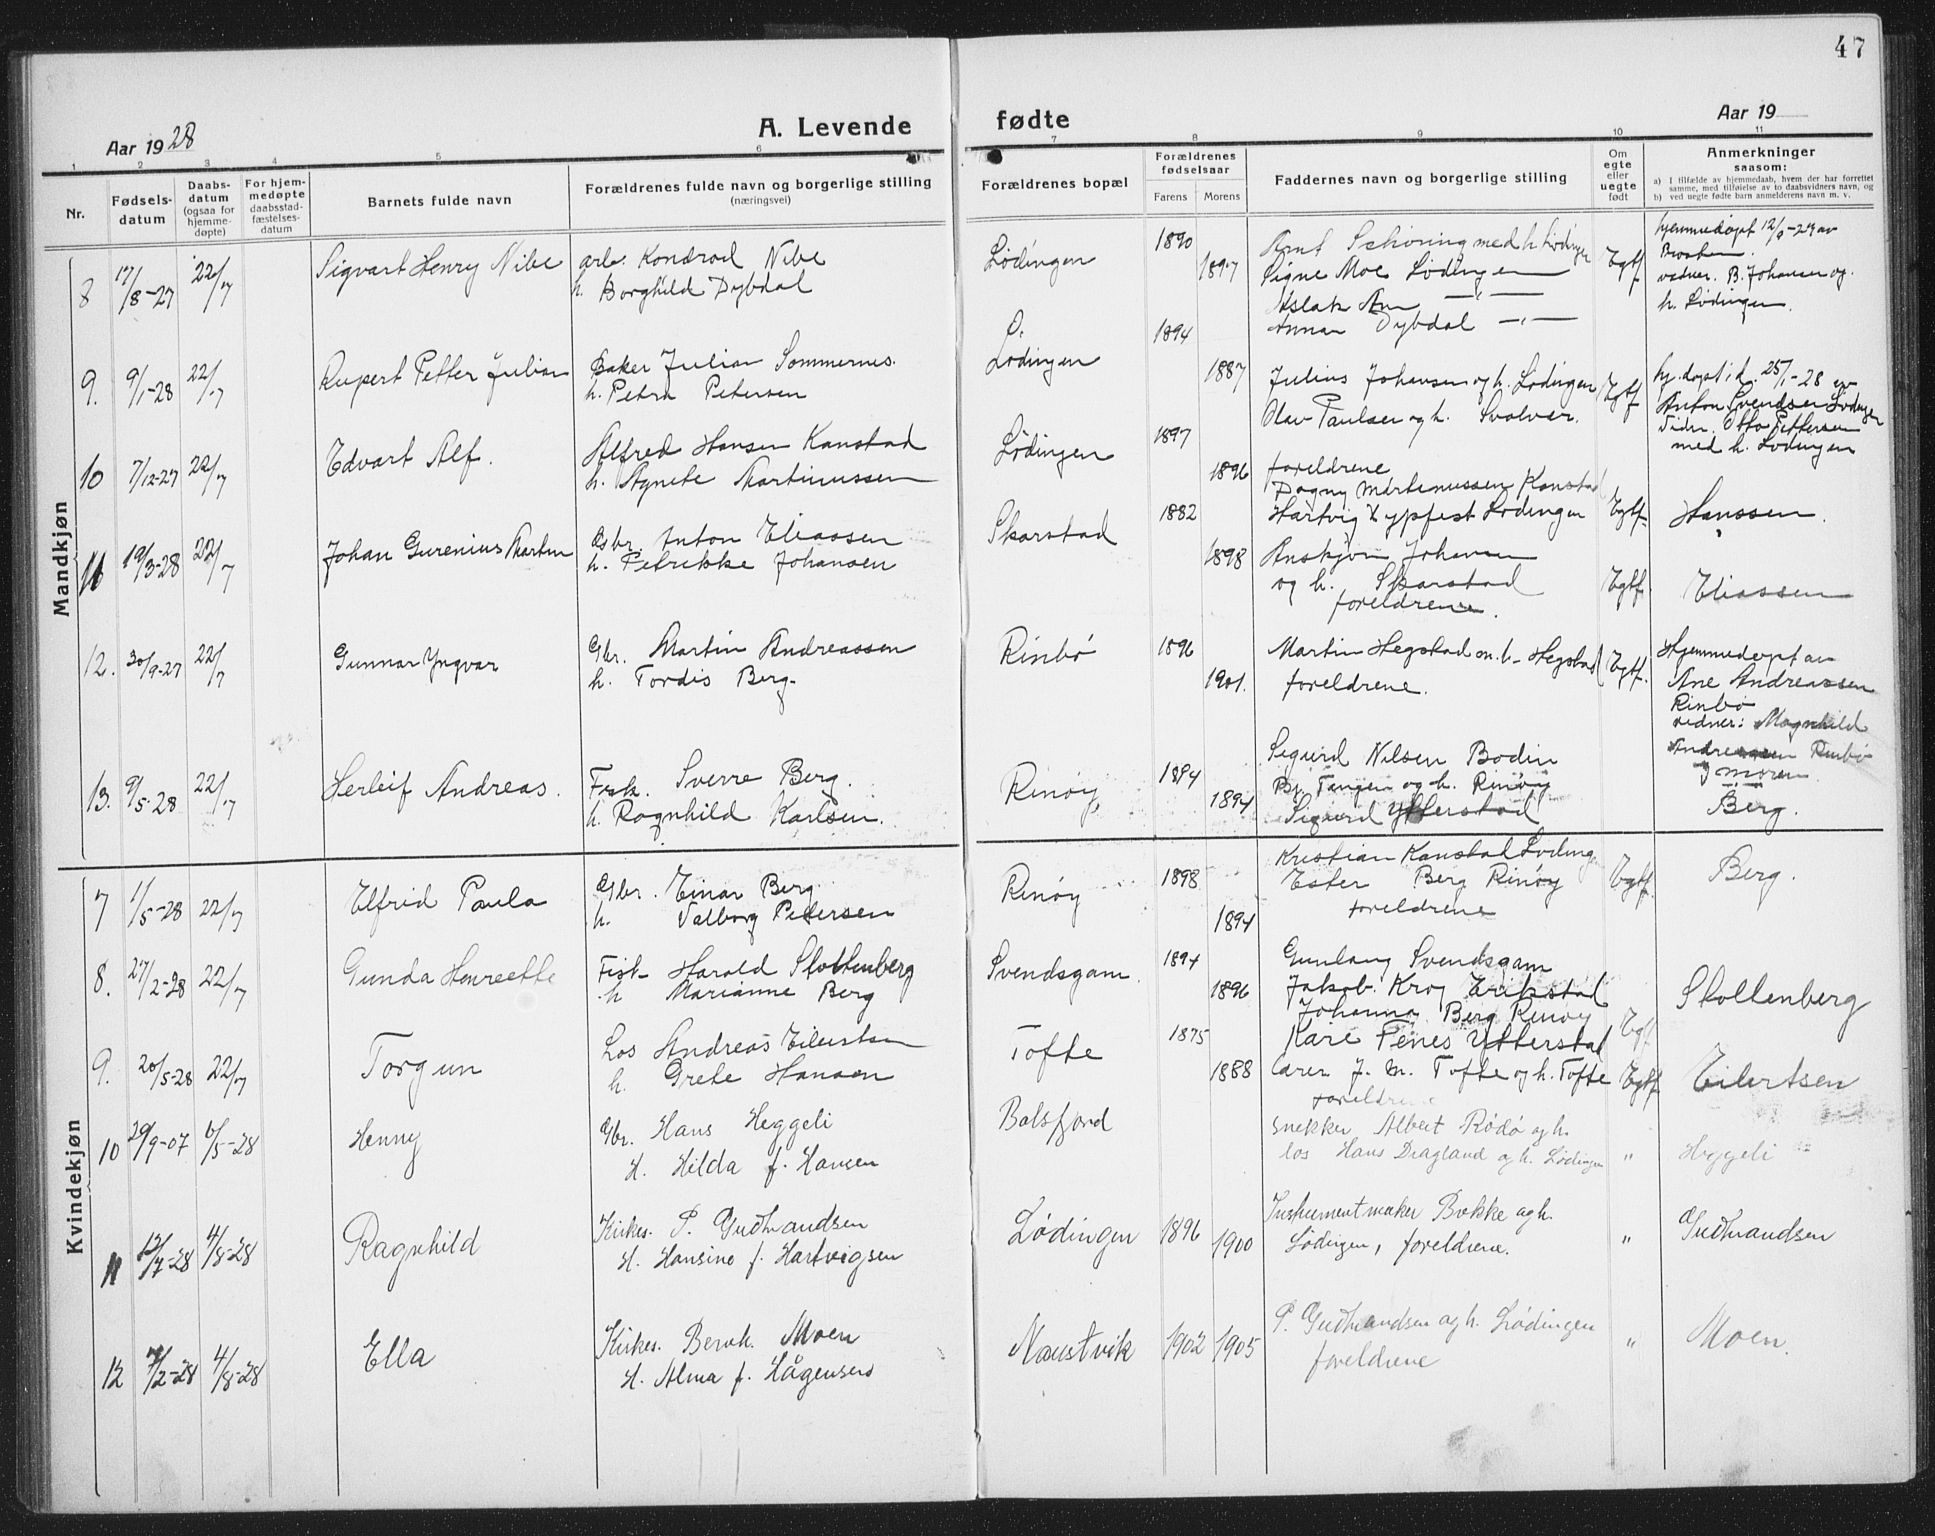 47
Aar 1928
A. Levende
fødte
Aar 19
1 2 3 4 5 6 7 8 9 10 11
Nr.
Fødsels-
datum
Daabs-
datum
(ogsaa for
hjemme-
døpte)
For hjem-
medøpte
daabsstad-
fæstelses-
datum
Barnets fulde navn
Forældrenes fulde navn og borgerlige stilling
(næringsvei)
Forældrenes bopæl
Forældrenes
fødselsaar
Farens Morens
Faddernes navn og borgerlige stilling
Om
egte
eller
uegte
født
Anmerkninger
saasom:
a) I tilfælde av hjemmedaab, hvem der har forrettet
samme, med tilføielse av to daabsvidners navn, og
b) ved uegte fødte barn anmelderens navn m. v.
Mandkjøn
8 17/8-27 22/7 Sigvart Henry Nibe
arb. Kondrad Nibe
h. Borghild Dybdal
Lødingen 1890 1897
Arnt Schøning med h. Lødingen
Signe Moe Lødingen
Aslak Am —"—
Annar Dybdal —"—
Egtf.
hjemmedøpt 12/9-27 av
vidner. B. Johansen og
h. Lødingen.
9. 9/1-28 22/7 Rupert Petter Julian
Baker Julian Sommernes.
h. Petra Petersen
Ø.
Lødingen 1894 1887
Julius Johansen og h. Lødingen
Olav Paulsen og h. Svolvær.
Egtf.
hj. døpt i d. 25/1-28 av
Anton Svendsen Lødingen
Vidn. Otto Pettersen
med h. Lødingen
10 7/12-27 22/7 Edvart Alf.
Alfred Hansen Kanstad
h. Agnete Martinussen
Lødingen 1897 1896
foreldrene
Dagny Martenussen Kanstad
Hartvig Zypfest Lødingen
Egtf.
Hanssen.
11 19/3-28 22/7 Johan Gurenius Martin
Gsbr. Anton Eliassen
h. Petrikke Johansen
Skarstad 1882 1898
Anskjøn Johansen
og h. Skarstad
foreldrene.
Egtf.
Eliassen
12. 30/9-27 22/7 Gunnar Yngvar
Gbr. Martin Andreassen
h. Tordis Berg.
Rinbø 1896 1901.
Martin Hegstad m. h. Hegstad
foreldrene.
Egtf.
Hjemmedøpt av
Ane Andreassen
Rinbø
vidner: Magnhild
Andreassen Rinbø
og moren.
13. 9/5-28 22/7 Herleif Andreas.
Fisk. Sverre Berg.
h. Ragnhild Karlsen.
Rinøy 1894 1894
Sigurd Nilsen Bodin
Bj. Tangen og h. Rinøy
Sigurd Ytterstad
Berg.
Kvindekjøn
7 1/5-28 22/7 Elfrid Paula
Gbr. Einar Berg
h. Valborg Petersen
Rinøy 1898 1894
Kristian Kanstad Lødingen
Ester Berg Rinøy
foreldrene
Egtf.
Berg.
8. 27/2-28 22/7 Gunda Henreette
Fisk. Harald Skoltenberg
h Marianne Berg
Svendsgam. 1894 1896
Gunlaug Svendsgam
Jakob Krog Erikstad
Johanna Berg Rinøy
Kåre Fenes Ytterstad
Egtf.
Skollenberg
9. 20/5-28 22/7 Torgun
Los Andreas Eilertsen
h. Grete Hansen
Tofte 1875 1888
Caren J. M. Tofte og h. Tofte
foreldrene
Egtf.
Eilertsen
10 29/9-07 6/5-28 Henny
Gbr. Hans Heggeli
H. Hilda f. Hansen
Balsfjord
snekker Albert Rødø og h.
los Hans Dragland og h. Lødingen
"
Heggeli
11 12/7-28 4/8-28 Ragnhild
Kirkes. P. Gudbrandsen
H. Hansine f. Hartvigsen
Lødingen 1896 1900
Instrumentmaker Bakke og h.
Lødingen, foreldrene.
"
Gudbrandsen
12 7/2-28 4/8-28 Ella
Kirkes. Bernh. Moen
H. Alma f. Hågensen
Naustvik 1902 1905
P. Gudbrandsen og h. Lødingen
foreldrene
"
Moen.